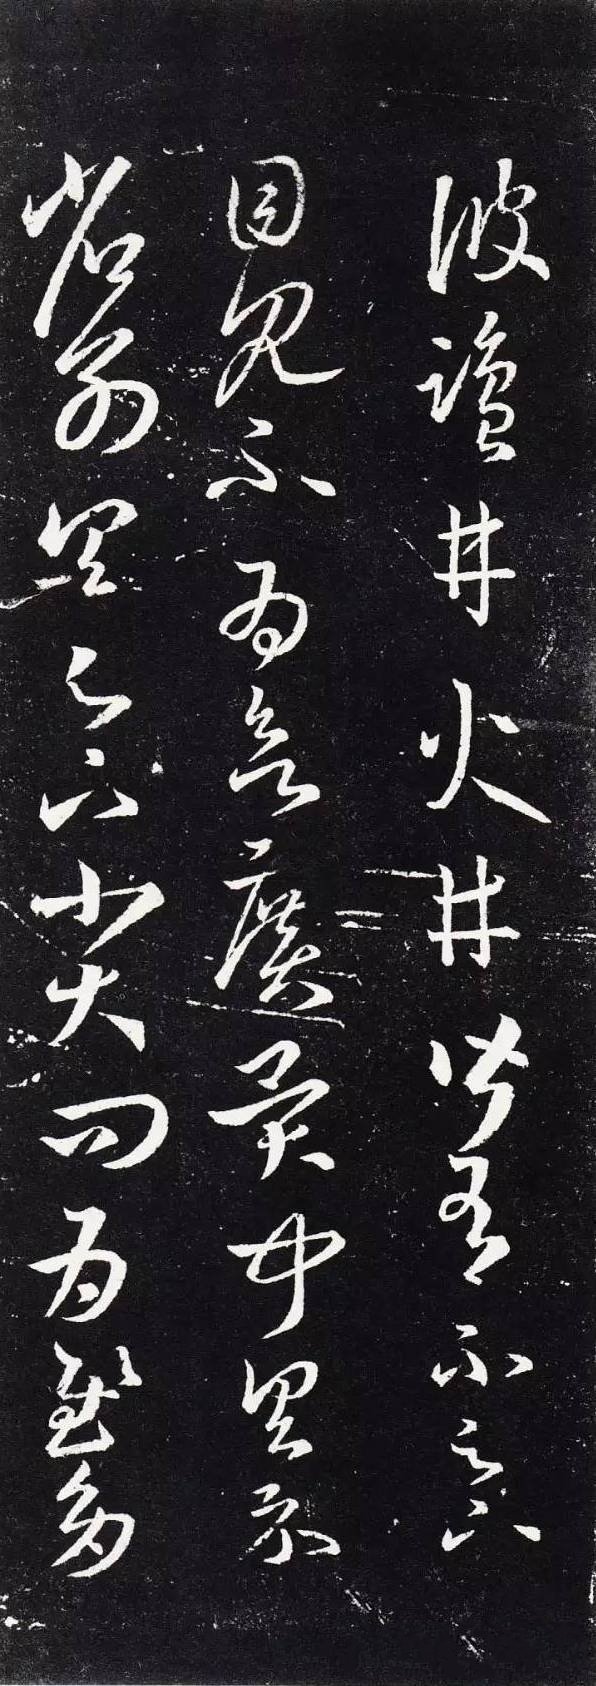 彼鹽井火井皆有不足下
目見不為欲廣異聞具示
省別具足下小大問為慰多